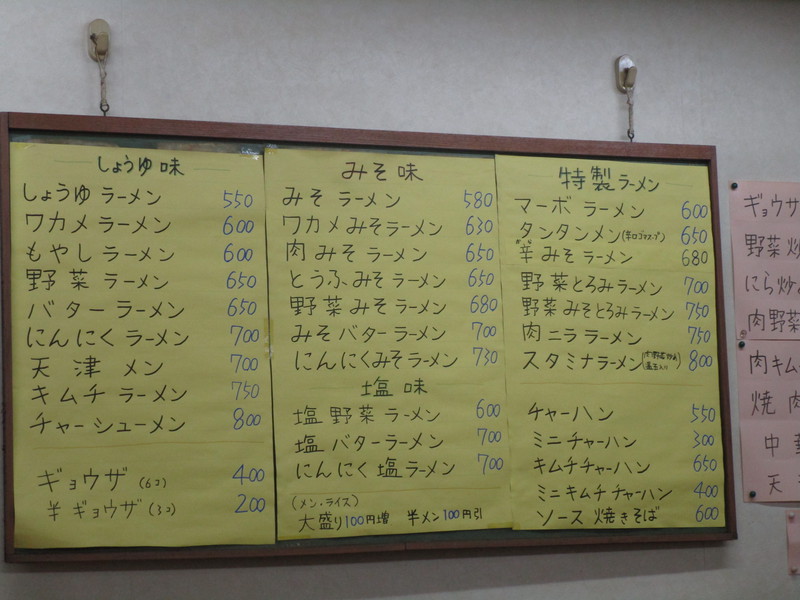 しょうゆ味
しょうゆ ラーメン 550
ワカメ ラーメン 600
もやし ラーメン 600
野菜 ラーメン 650
バター ラーメン 650
にんにく ラーメン 700
天津 メン 700
キムチ ラーメン 750
チャーシューメン 800
ギョウザ (6コ) 400
半 ギョウザ (3コ) 200
みそ味
みそ ラーメン 580
ワカメ みそ ラーメン 630
肉 みそ ラーメン 650
とうふ みそ ラーメン 650
野菜 みそ ラーメン 680
みそ バター ラーメン 700
にんにく みそ ラーメン 730
塩味
塩 野菜 ラーメン 600
塩 バター ラーメン 700
にんにく 塩 ラーメン 700
(メン・ライス)
大盛り100円増 半メン100円引
特製 ラーメン
マーボ ラーメン 600
タンタンメン 650
"辛" みそ ラーメン 680
野菜 とろみ ラーメン 700
野菜 みそ とろみ ラーメン 750
肉 ニラ ラーメン 750
スタミナ ラーメン 800
チャーハン 550
ミニ チャーハン 300
キムチ チャーハン 650
ミニ キムチ チャーハン 400
ソース 焼きそば 600
ギョウザ
野菜 炒
にら 炒
肉野菜
肉キム
焼肉
中
天